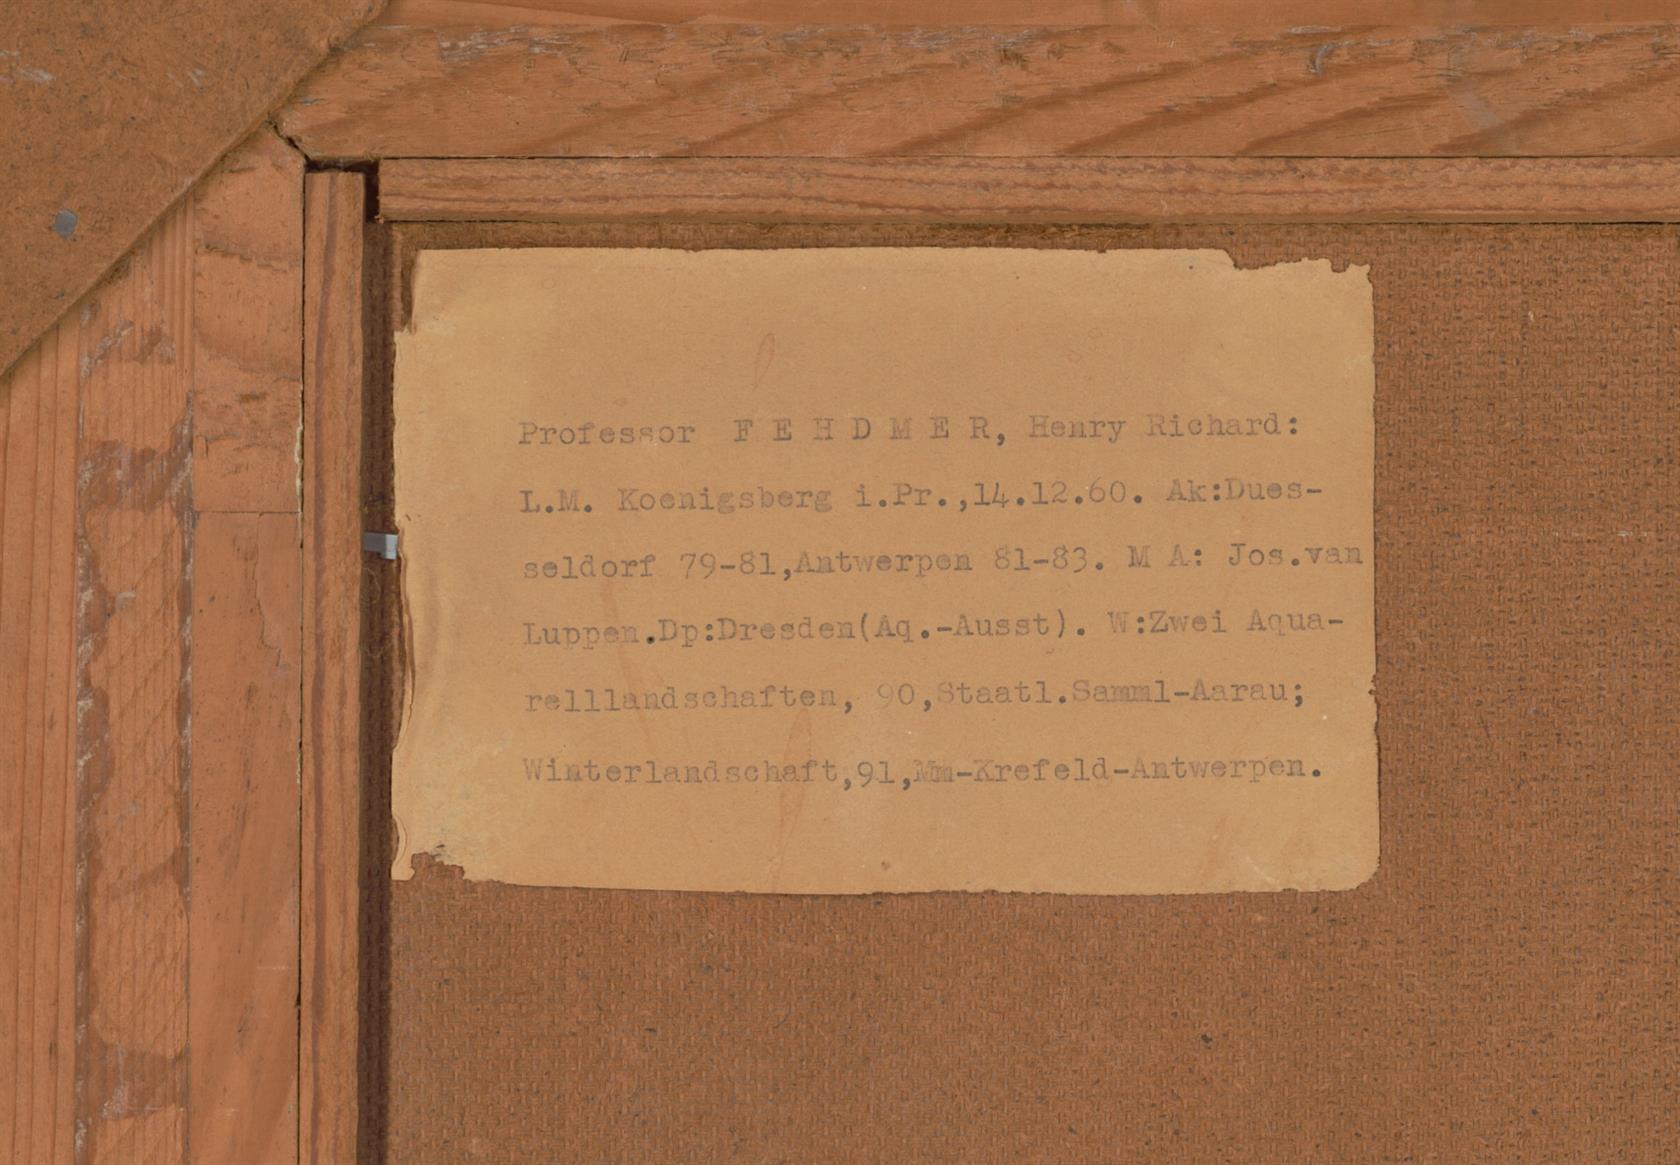 Professor F E H D M E R, Henry Richard:
L.M. Koenigsberg i.Pr.,14.12.60. Ak:Dues-
seldorf 79-81,Antwerpen 81-83. M A: Jos.van
Luppen.Dp:Dresden(Aq.-Ausst). W:Zwei Aqua-
relllandschaften, 90,Staatl.Samml-Aarau;
Winterlandschaft,91,Mm-Krefeld-Antwerpen.